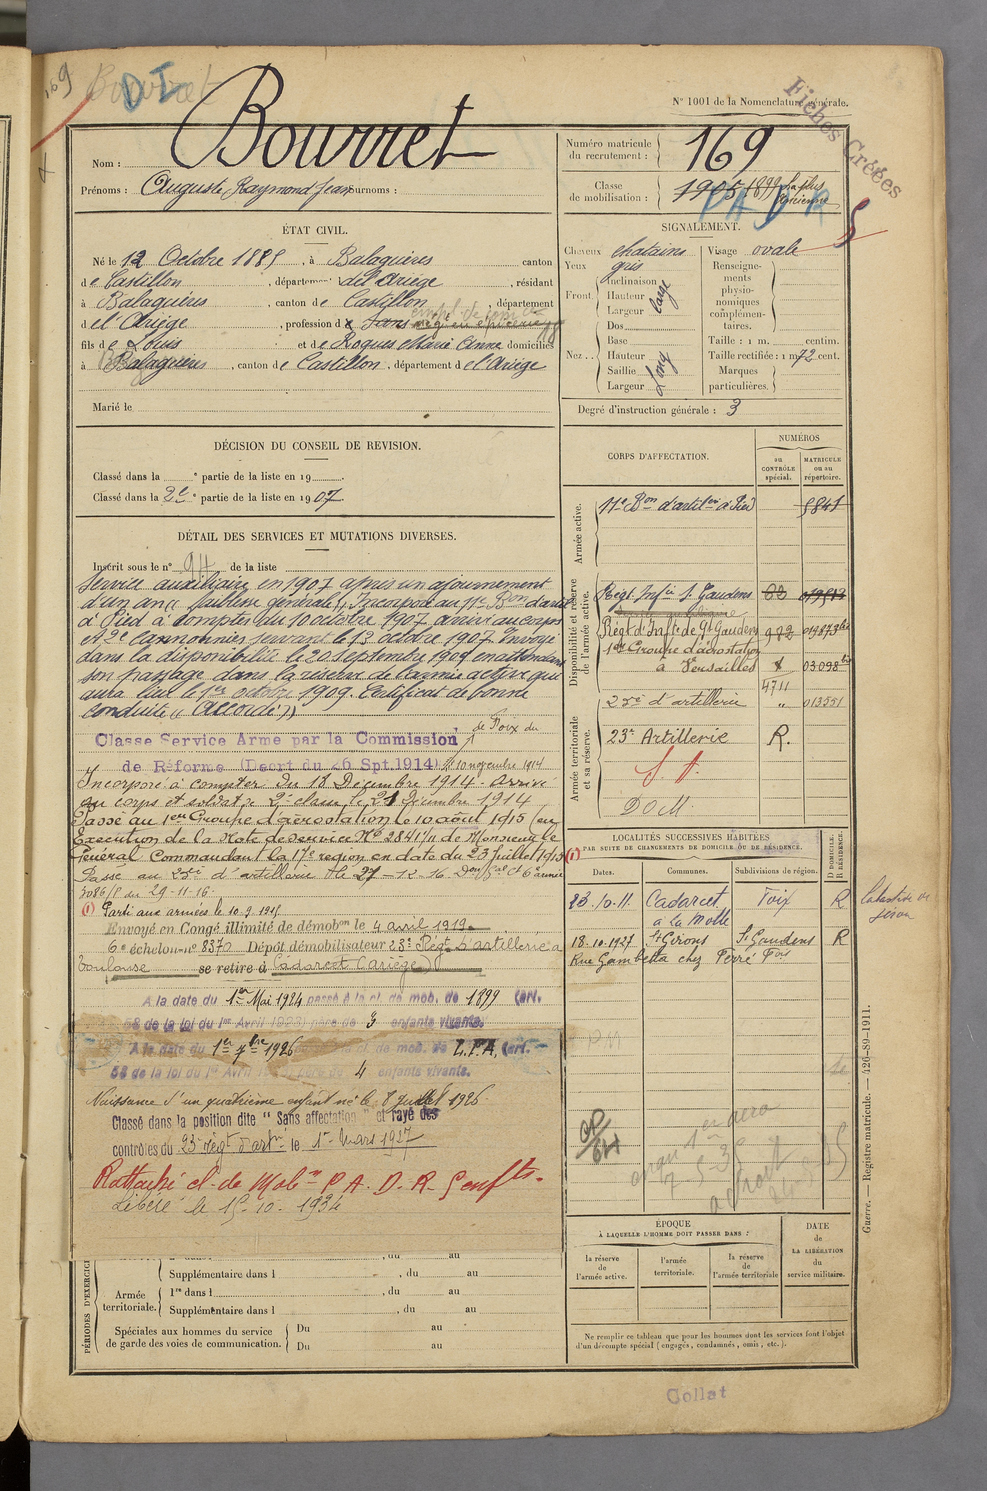 169
Bourret
D I
N° 1001 de la Nomenclature générale.
Fiches Créées
Nom : Bourret
Prénoms : Auguste Raymond Jean Surnoms :
Numéro matricule
du recrutement : 169
Classe
de mobilisation : 1905 1899 la plus
ancienne
P A D R
5
ÉTAT CIVIL.
Né le 12 Octobre 1885, à Balaguères canton
de Castillon, département de l'Ariège, résidant
à Balaguères, canton de Castillon, département
de l'Ariège, profession de Sans
fils de Louis et de Roques Marie Anne domiciliés
à Balaguères, canton de Castillon, département de l'Ariège
Marié le
SIGNALEMENT.
Cheveux chatains
Yeux gris
Front Inclinaison
Hauteur large
Largeur
Dos
Nez Base
Hauteur Long
Saillie
Largeur
Visage ovale
Renseigne-
ments
physio-
nomiques
complémen-
taires.
Taille : 1 m. centim.
Taille rectifiée : 1 m 72 cent.
Marques
particulières.
Degré d'instruction générale : 3
DÉCISION DU CONSEIL DE REVISION.
Classé dans la e partie de la liste en 19
Classé dans la 2e partie de la liste en 1907
DÉTAIL DES SERVICES ET MUTATIONS DIVERSES.
Inscrit sous le n° 94 de la liste
Service auxiliaire en 1907 après un ajournement
d'un an (faiblesse générale), Incorporé au 11e Bon d'artie
à Pied à compter du 10 octobre 1907, arrivé au corps
et 2e cannonier servant le 12 octobre 1907. Envoyé
dans la disponibilité le 20 septembre 1909 en attendant
son passage dans la réserve de l'armée active qui
aura lieu le 1er octobre 1909. Certificat de bonne
conduite « Accordé »
Classe Service Armé par la Commission de Foix du
de Réforme (Décrt du 26 Spt.1914) 10 novembre 1914
Incorporé à compter du 18 Décembre 1914. Arrivé
au corps et soldat de 2e classe le 21 Décembre 1914
Passé au 1er Groupe d'aérostation le 10 août 1915 (en
Exécution de la Note de service No 2841/11 de Monsieur le
Général Commandant la 17e région en date du 23 juillet 1915
Passé au 23e d'artillerie le 27-12-16
3086/P du 29-11-16.
(1) Parti aux armées le 10.9.1915
Envoyé en Congé illimité de démobon le 4 avril 1919
6e échelon no 8370 Dépôt démobilisateur 23e Régt d'artillerie à
Toulouse se retire à Cadarcet (Ariège)
A la date du 1er Mai 1924 passé à la cl. de mob. de 1899 (art.
58 de la loi du 1er Avril 1923) père de 3 enfants vivants.
A la date du 1er 7bre 1926 la cl. de mob. de L.P.A. (art.
58 de la loi du 1er Avril père de 4 enfants vivants.
Naissance d'un quatrième enfant né le 8 Juillet 1926
Classé dans la position dite " Sans affectation " et rayé des
contrôles du 23e régt d'artie le 1er Mars 1927
Rattaché cl. de Mob on P. A. D. R. 5 enfts.
Libéré le 15-10-1934
CORPS D'AFFECTATION.
NUMÉROS
au
CONTRÔLE
spécial.
MATRICULE
ou au
répertoire.
Armée active.
11e Bon d'artie à Pied 5841
Disponibilité et réserve
de l'armée active.
Régt Infie St Gaudens
Régt d'Inftie de St Gaudens 982
1er Groupe d'aérostation
à Versailles 03098
4711
23e d'artillerie " 013551
Armée territoriale
et sa réserve.
23e Artillerie R.
S. A.
DOM.
LOCALITÉS SUCCESSIVES HABITÉES
PAR SUITE DE CHANGEMENTS DE DOMICILE OU DE RÉSIDENCE.
(1)
Dates. Communes. Subdivisions de région. D DOMICILE. R RÉSIDENCE.
23.10.11 Cadarcet Foix R
à la Motte
18.10.1927 St Girons St Gaudens R
Rue Gambetta chez Ferré
ÉPOQUE
À LAQUELLE L'HOMME DOIT PASSER DANS :
la réserve
de
l'armée active.
l'armée
territoriale.
la réserve
de
l'armée territoriale
DATE
de
LA LIBÉRATION
du
service militaire.
Ne remplir ce tableau que pour les hommes dont les services font l'objet
d'un décompte spécial (engagés, condamnés, omis, etc.).
PÉRIODES D'EXERCICE
, du au
Supplémentaire dans l , du au
Armée
territoriale.
1re dans l , du au
Supplémentaire dans l , du au
Spéciales aux hommes du service
de garde des voies de communication.
Du au
Du au
Guerre. — Registre matricule. — 426-89-1911.
Collat